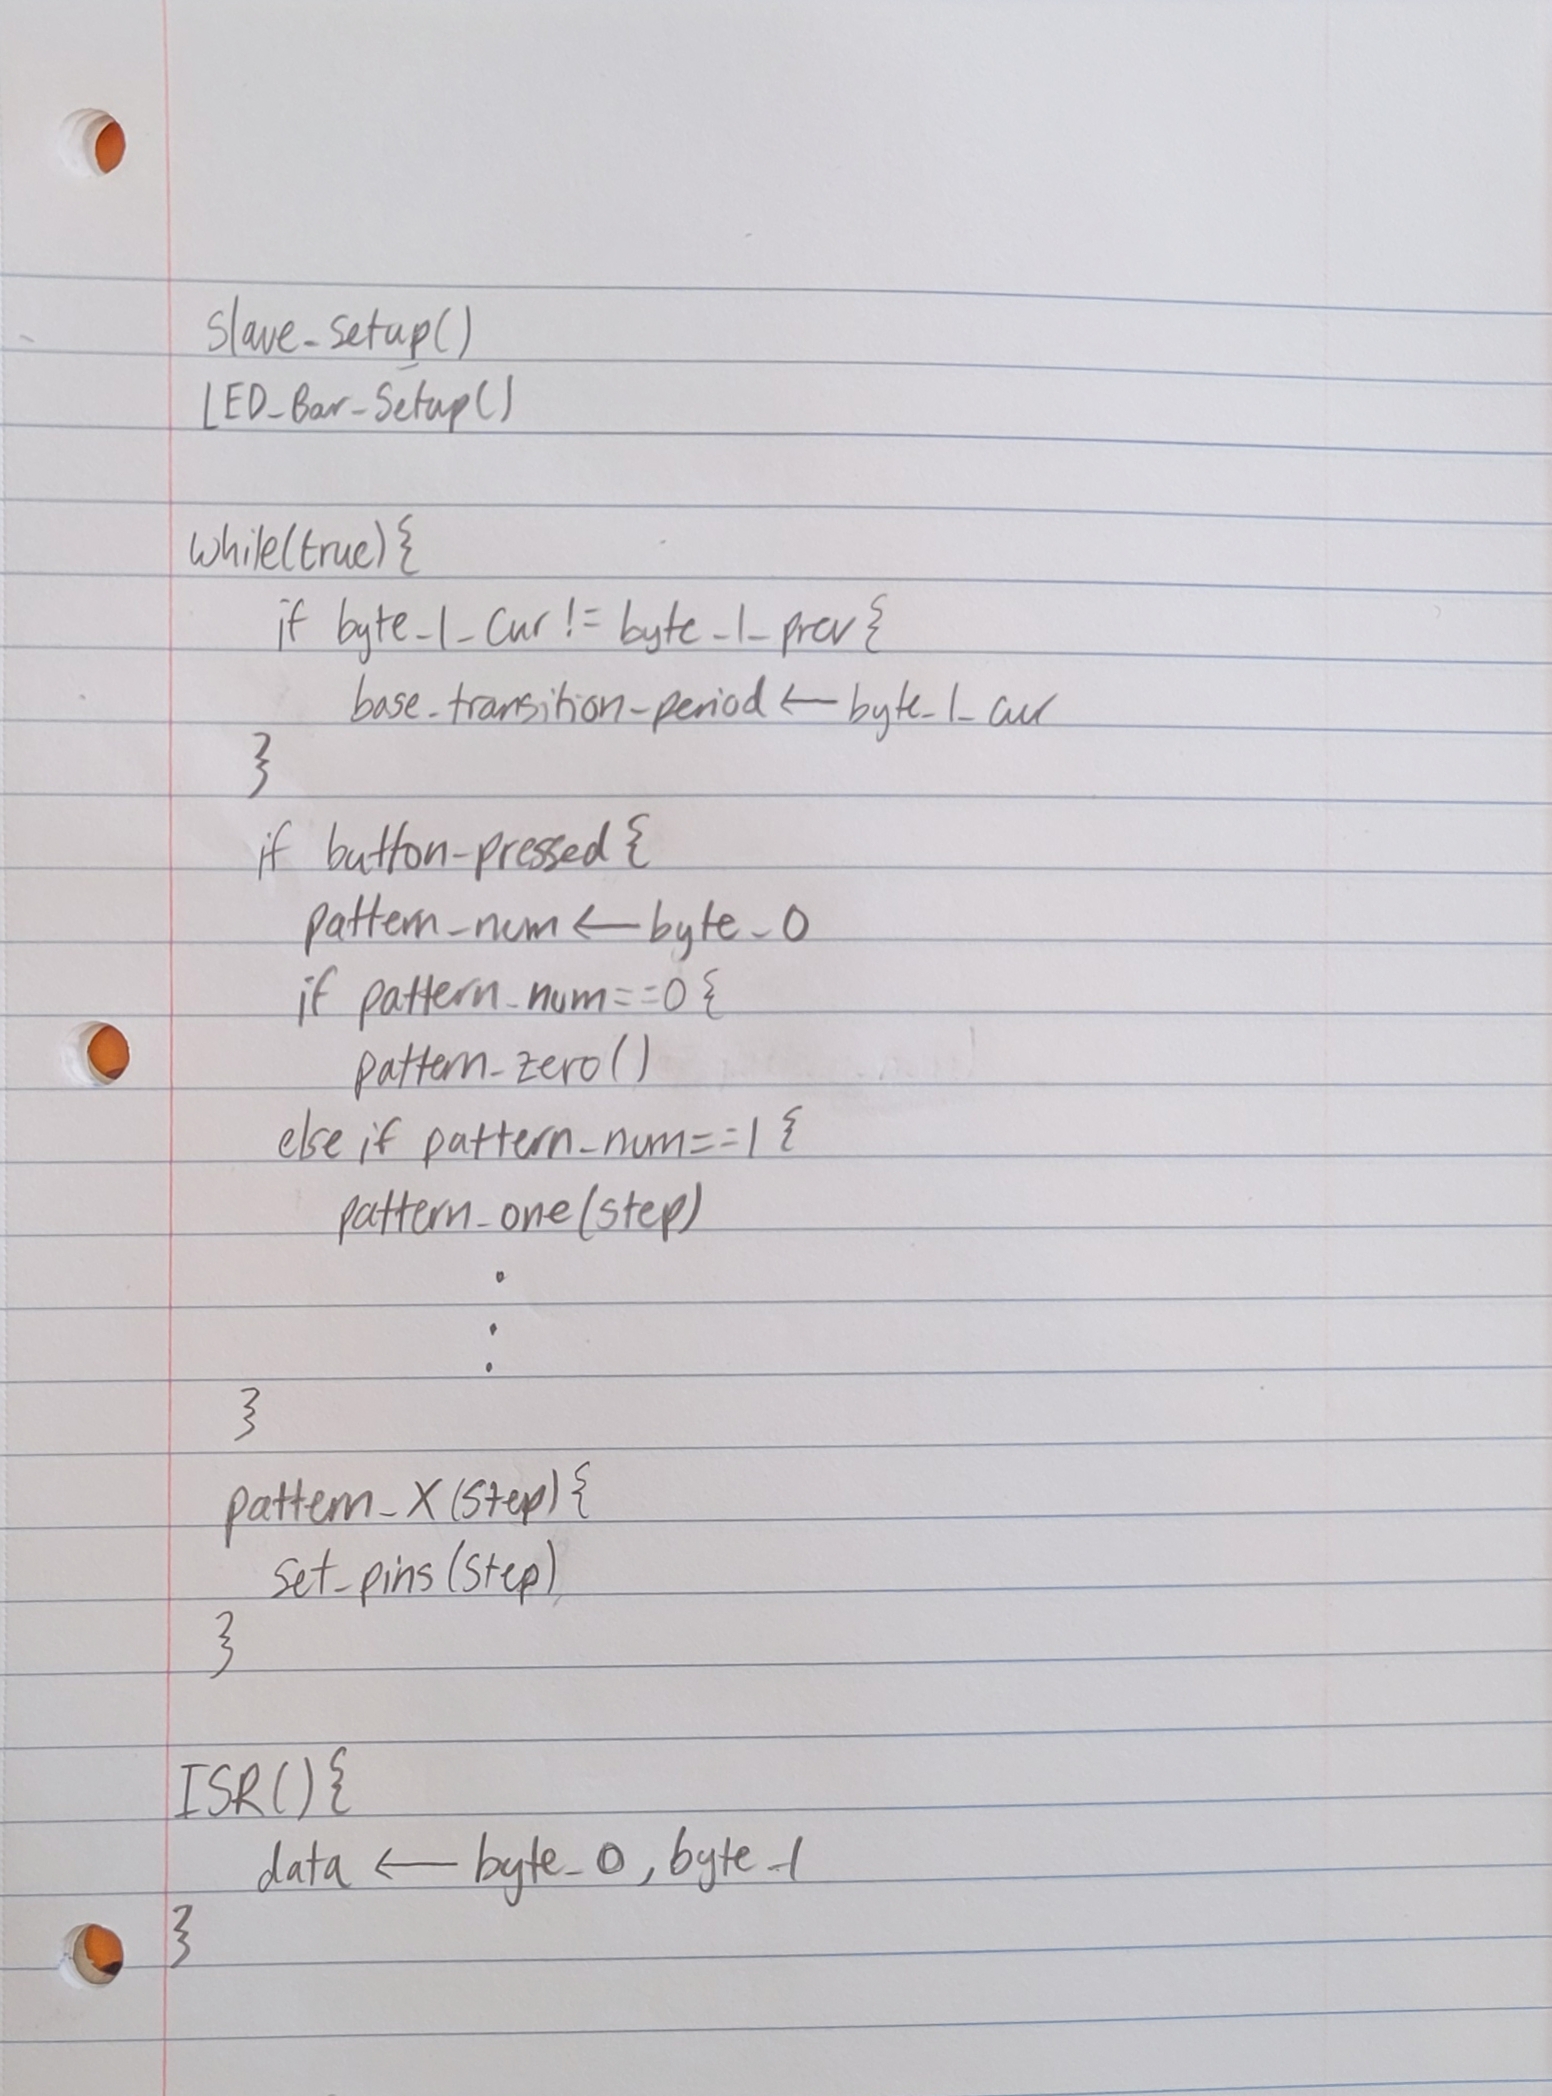 Slave_setup()
LED_Bar_Setup()
while(true){
if byte_1_cur != byte_1_prev{
base_transition_period ← byte_1_cur
}
if button_pressed{
pattern_num ← byte_0
if pattern_num==0{
pattern_zero()
else if pattern_num==1{
pattern_one(step)
.
.
.
}
pattern_X(step){
set_pins(step)
}
ISR(){
data ← byte_0, byte_1
}